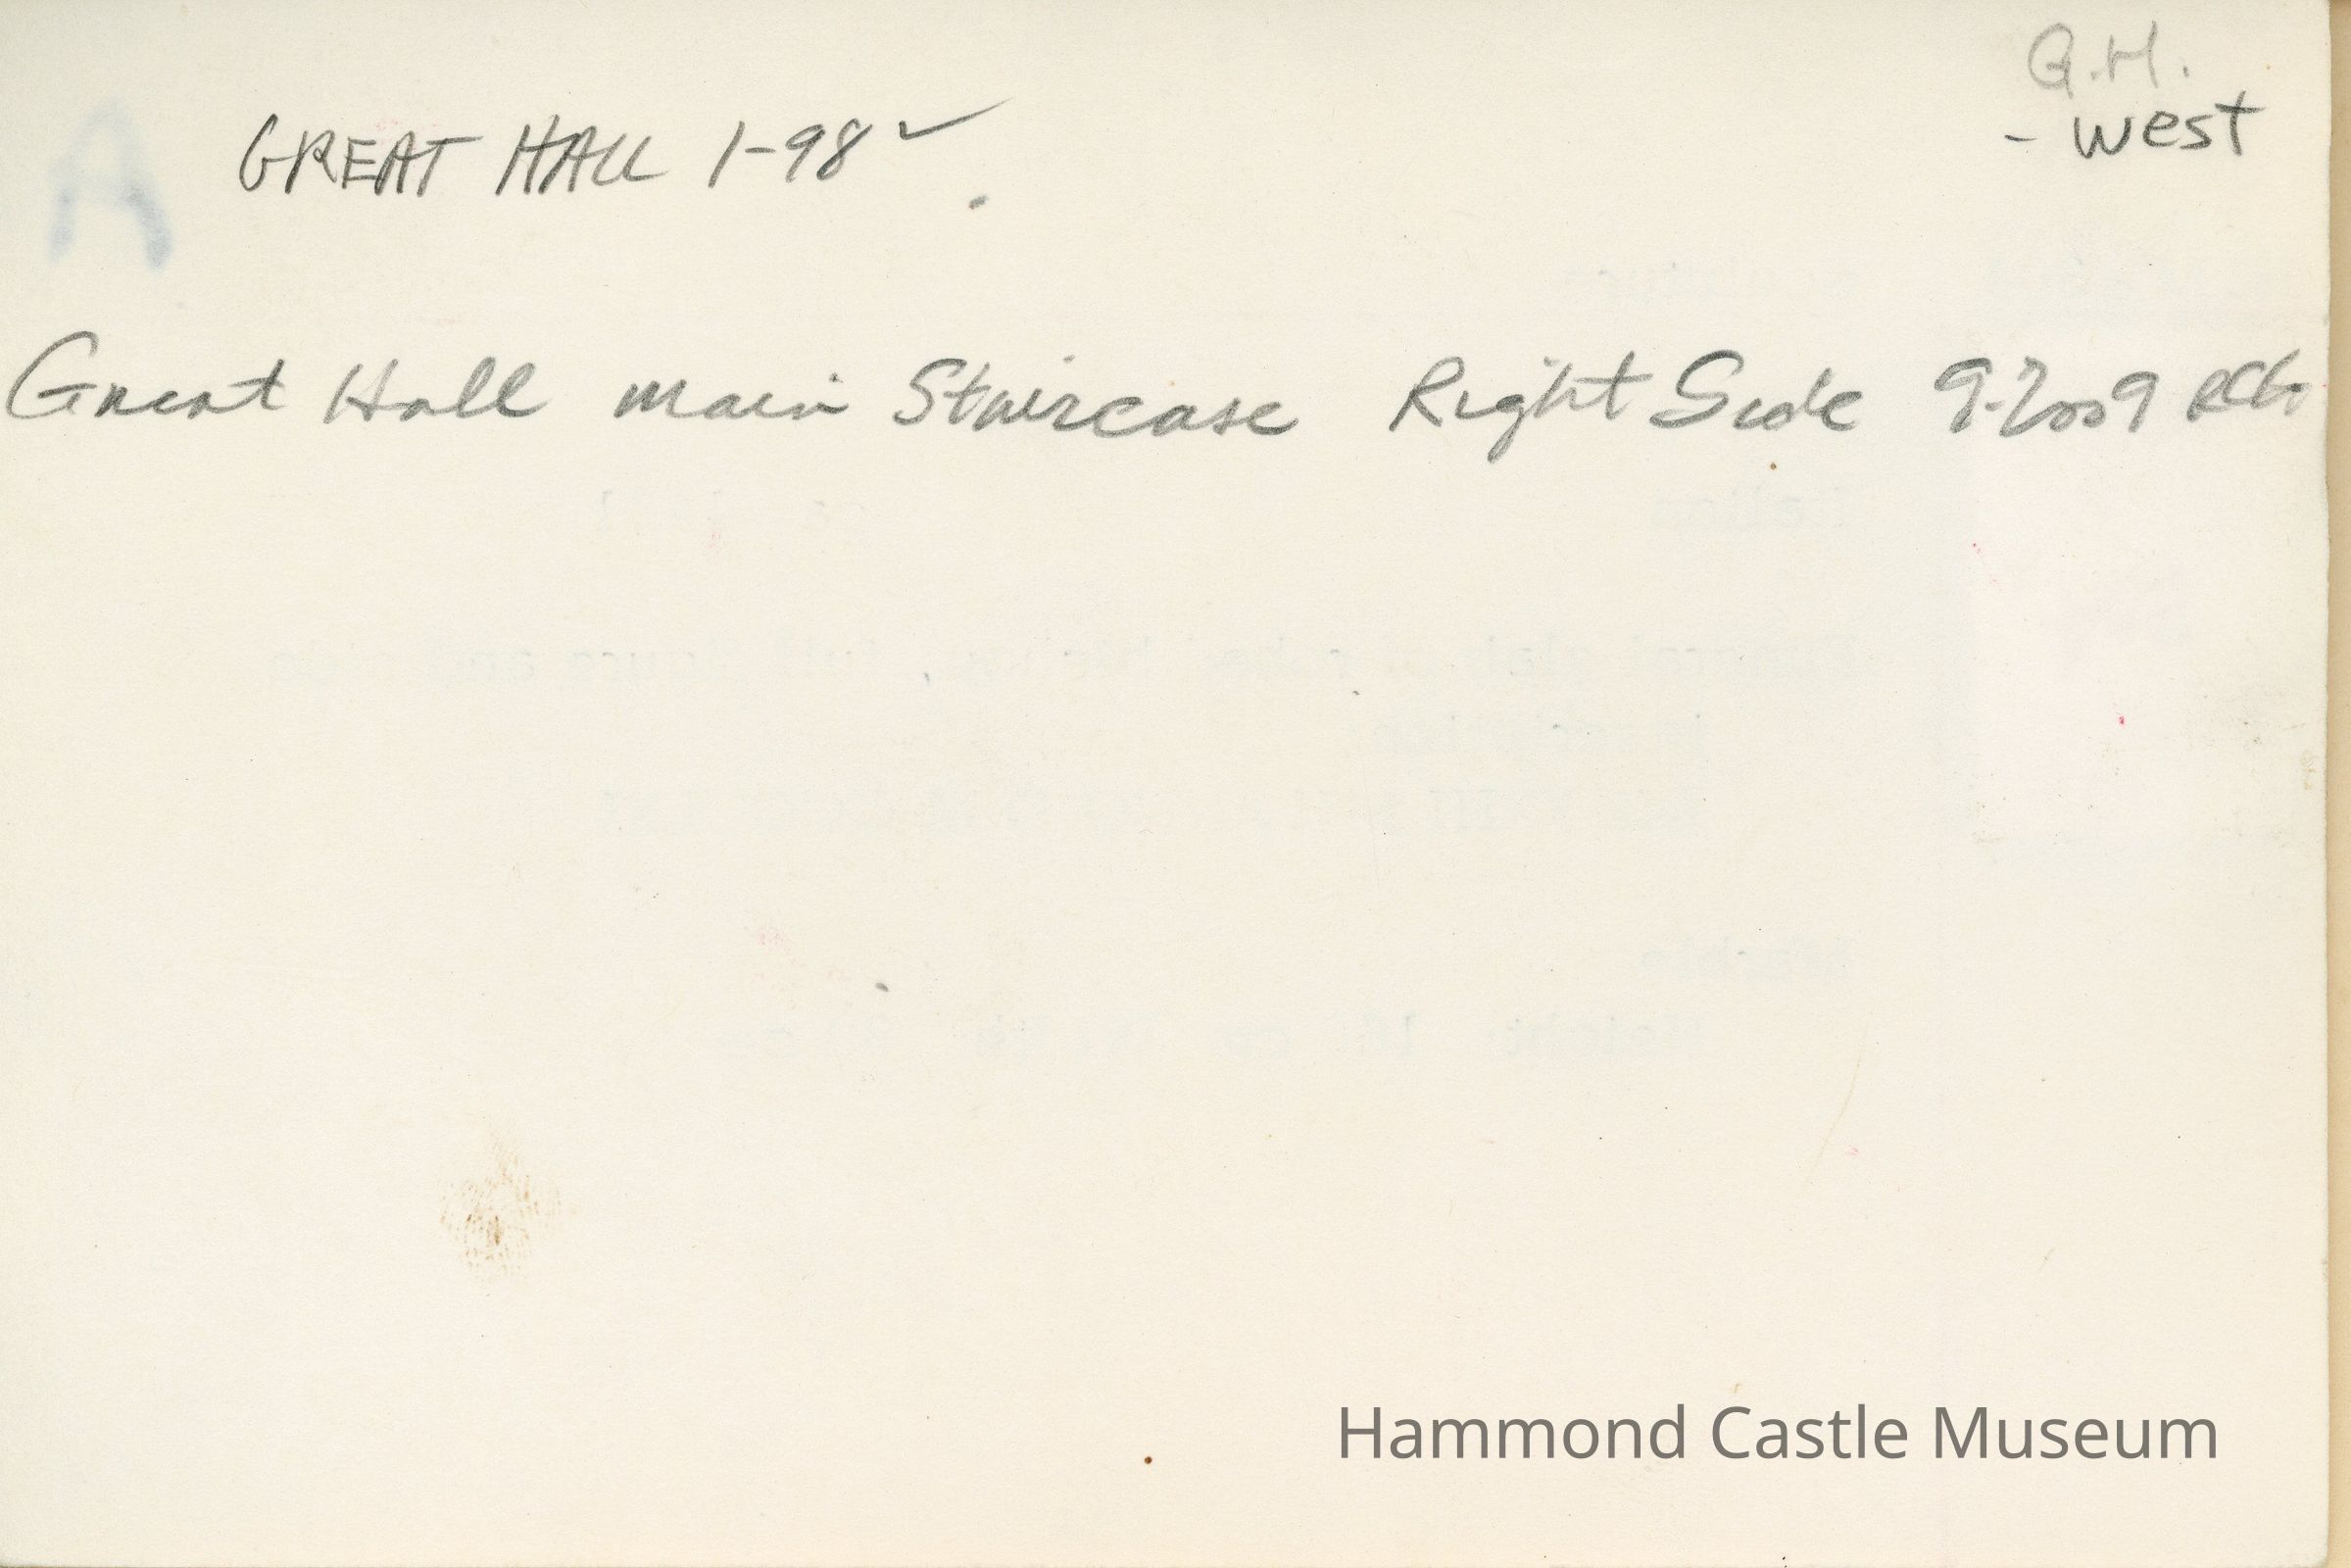 G.H.
- west
GREAT HALL 1-98 ✓
A
Great Hall main Staircase Right Side 9-2009
Hammond Castle Museum